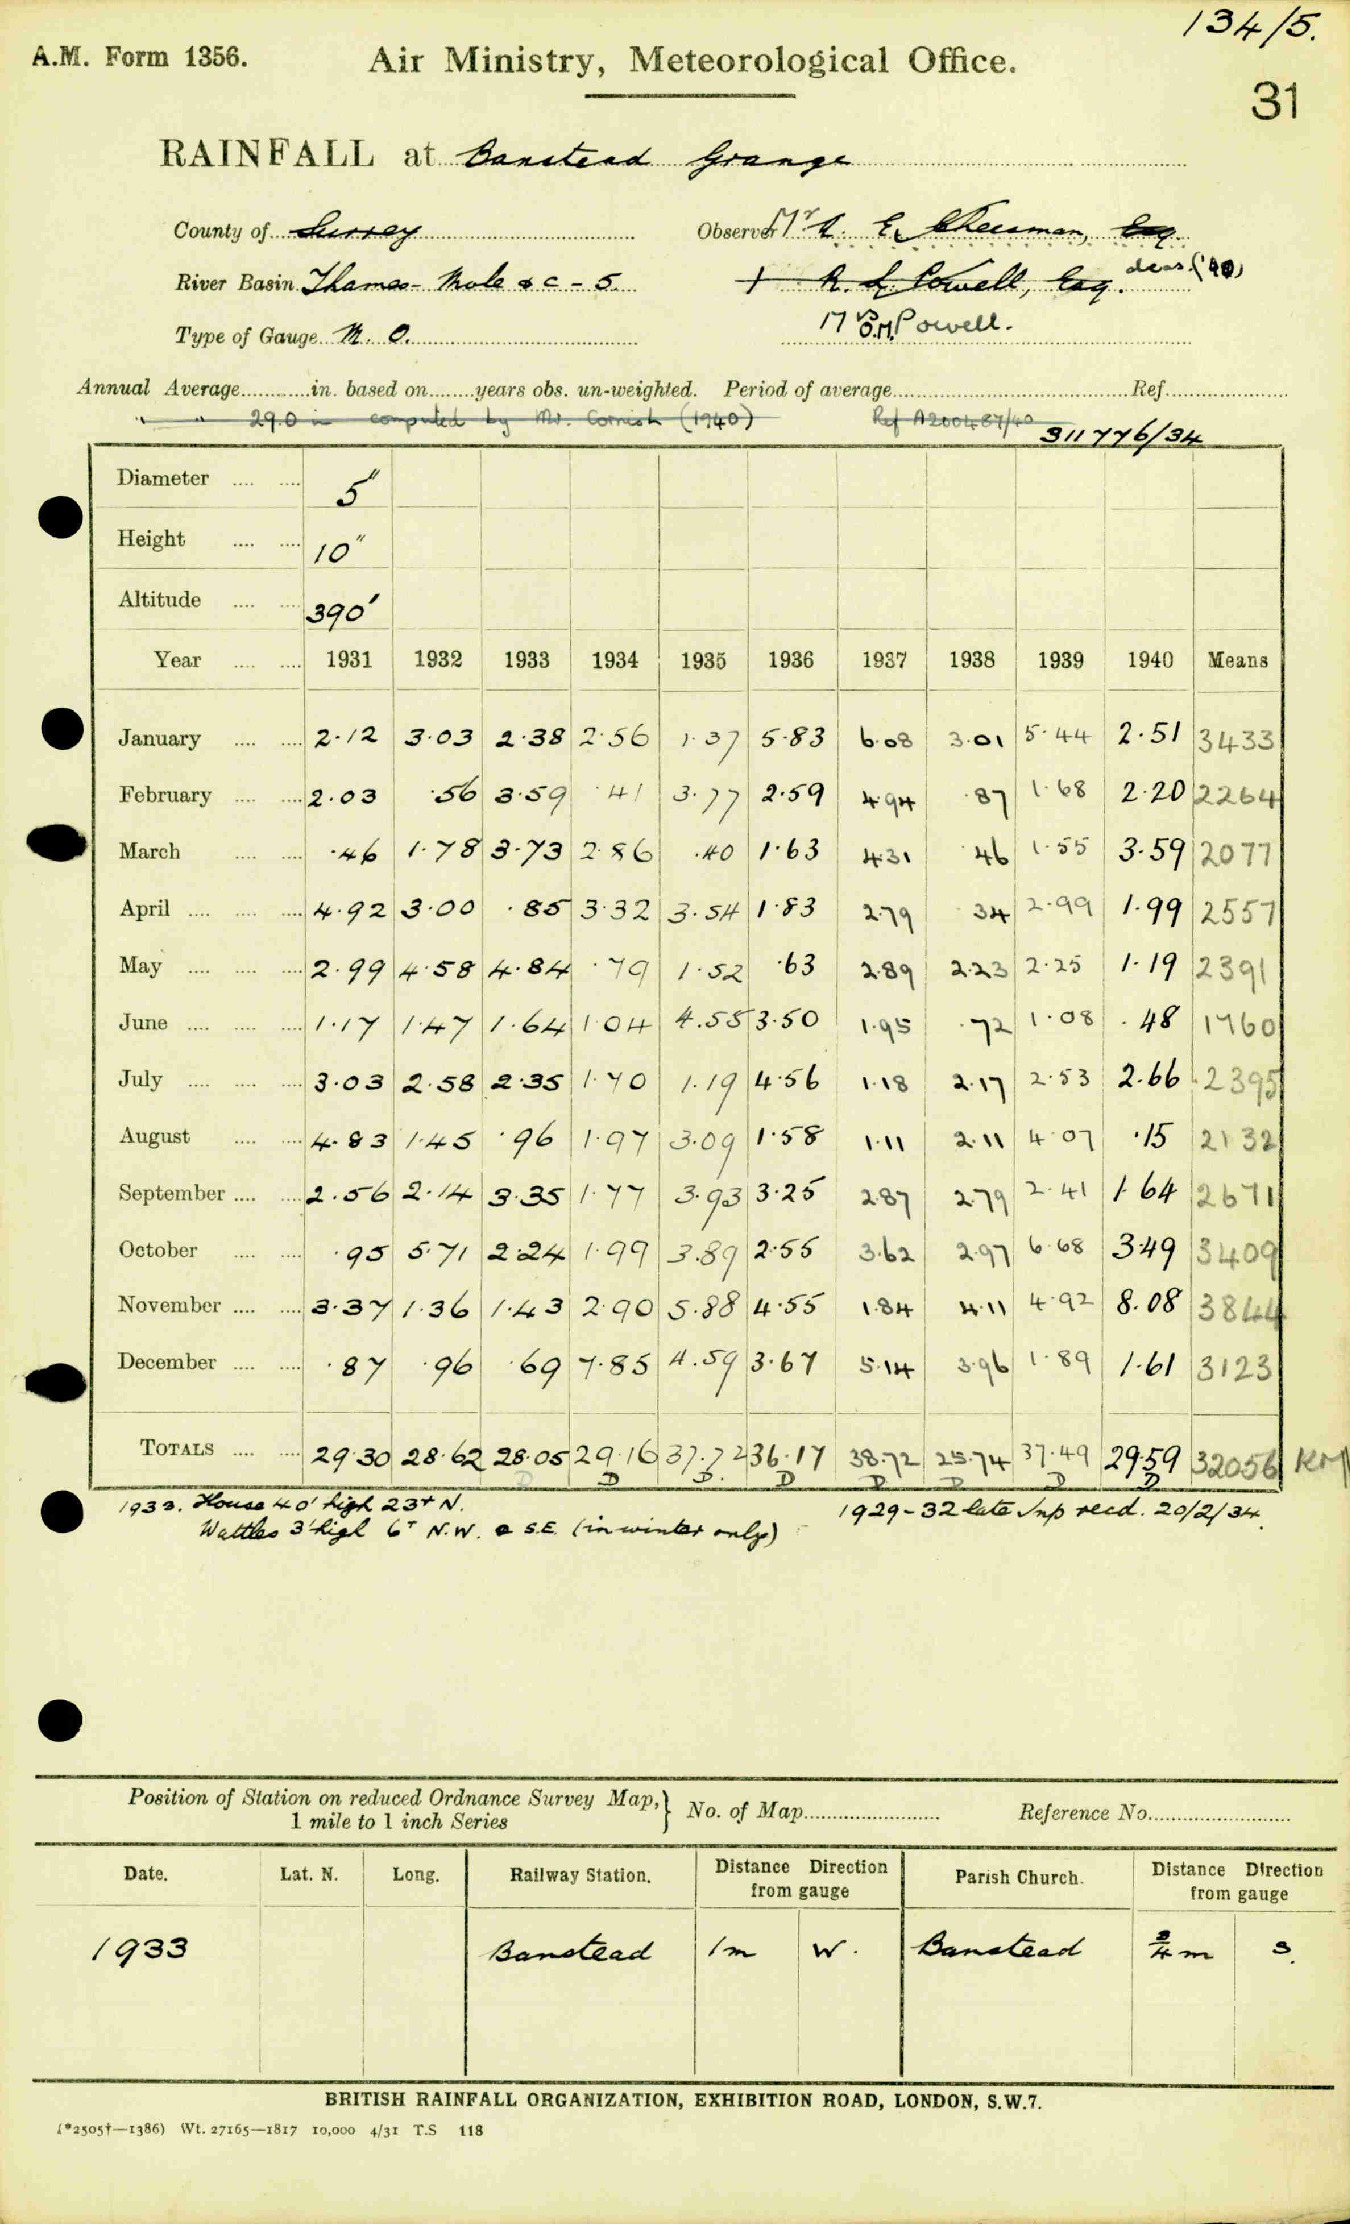 134/5.
A.M. Form 1356. Air Ministry, Meteorological Office.
31
RAINFALL at Banstead Grange
County of Surrey Observer Mr A. E. Cheesman, Esq.
River Basin Thames - Mole & C - 5. R. L. Powell, Esq. deas. ('40)
Type of Gauge M. O. Mrs O.M. Powell.
Annual Average............in. based on........years obs. un-weighted. Period of average............Ref............
" " 29.0 in computed by Mr. Cornish (1940) Ref A200487/40
311776/34
Diameter .... .... 5"
Height .... .... 10"
Altitude .... .... 390'
Year .... .... 1931 1932 1933 1934 1935 1936 1937 1938 1939 1940 Means
January .... .... 2.12 3.03 2.38 2.56 1.37 5.83 6.08 3.01 5.44 2.51 3433
February .... .... 2.03 .56 3.59 .41 3.77 2.59 4.94 .87 1.68 2.20 2264
March .... .... .46 1.78 3.73 2.86 .40 1.63 4.31 .46 1.55 3.59 2077
April .... .... .... 4.92 3.00 .85 3.32 3.54 1.83 2.79 .34 2.99 1.99 2557
May .... .... .... 2.99 4.58 4.84 .79 1.52 .63 2.89 2.23 2.25 1.19 2391
June .... .... .... 1.17 1.47 1.64 1.04 4.55 3.50 1.95 .72 1.08 .48 1760
July .... .... .... 3.03 2.58 2.35 1.70 1.19 4.56 1.18 2.17 2.53 2.66 2395
August .... .... 4.83 1.45 .96 1.97 3.09 1.58 1.11 2.11 4.07 .15 2132
September .... .... 2.56 2.14 3.35 1.77 3.93 3.25 2.87 2.79 2.41 1.64 2671
October .... .... .95 5.71 2.24 1.99 3.89 2.55 3.62 2.97 6.68 3.49 3409
November .... .... 3.37 1.36 1.43 2.90 5.88 4.55 1.84 4.11 4.92 8.08 3844
December .... .... .87 .96 .69 7.85 4.59 3.67 5.14 3.96 1.89 1.61 3123
TOTALS .... .... 29.30 28.62 28.05 29.16 37.72 36.17 38.72 25.74 37.49 29.59 32056 KM
D D D D D D D D
1933. House 40' high 23+ N. 1929-32 late Inp recd. 20/2/34.
Wattles 3' high 6+ N.W. & S.E. (in winter only)
Position of Station on reduced Ordnance Survey Map, } No. of Map............ Reference No............
1 mile to 1 inch Series
Date. Lat. N. Long. Railway Station. Distance Direction from gauge Parish Church. Distance Direction from gauge
1933 Banstead 1m W. Banstead 3/4 m S.
BRITISH RAINFALL ORGANIZATION, EXHIBITION ROAD, LONDON, S.W.7.
(*2505†—1386) Wt. 27165—1817 10,000 4/31 T.S 118